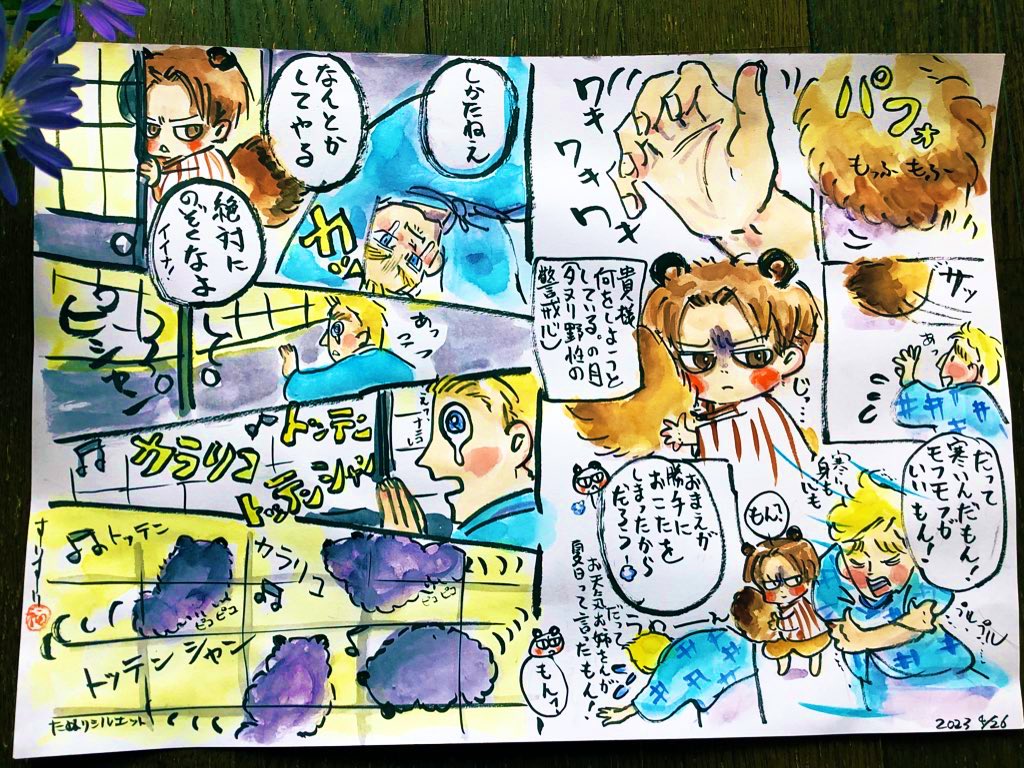 パフォ
もっふーもっふー
ワキ
ワキ
ワキ
サッ
あっ
貴様
何をしようと
している。の目
(タヌリ野性の
警戒心)
じっ…
だって
寒いんだもん!
モフモフが
いいもん!
寒い
身にも
もん?
プルプル
おまえが
勝手に
おこたを
しまったから
だろうー
だって
お天気お姉さんが
夏日って言ったもん!
もんっ
しかたねぇ
なんとか
してやる
ガッ
絶対に
のぞくなよ
イイナ!
ピシャン
して。
あっ
トッテン
カラリコ
トッテンシャン
トッテン
カラリコ
ピコピコ
ピコピコ
トッテン シャン
たぬリシルエット
2023 9/26